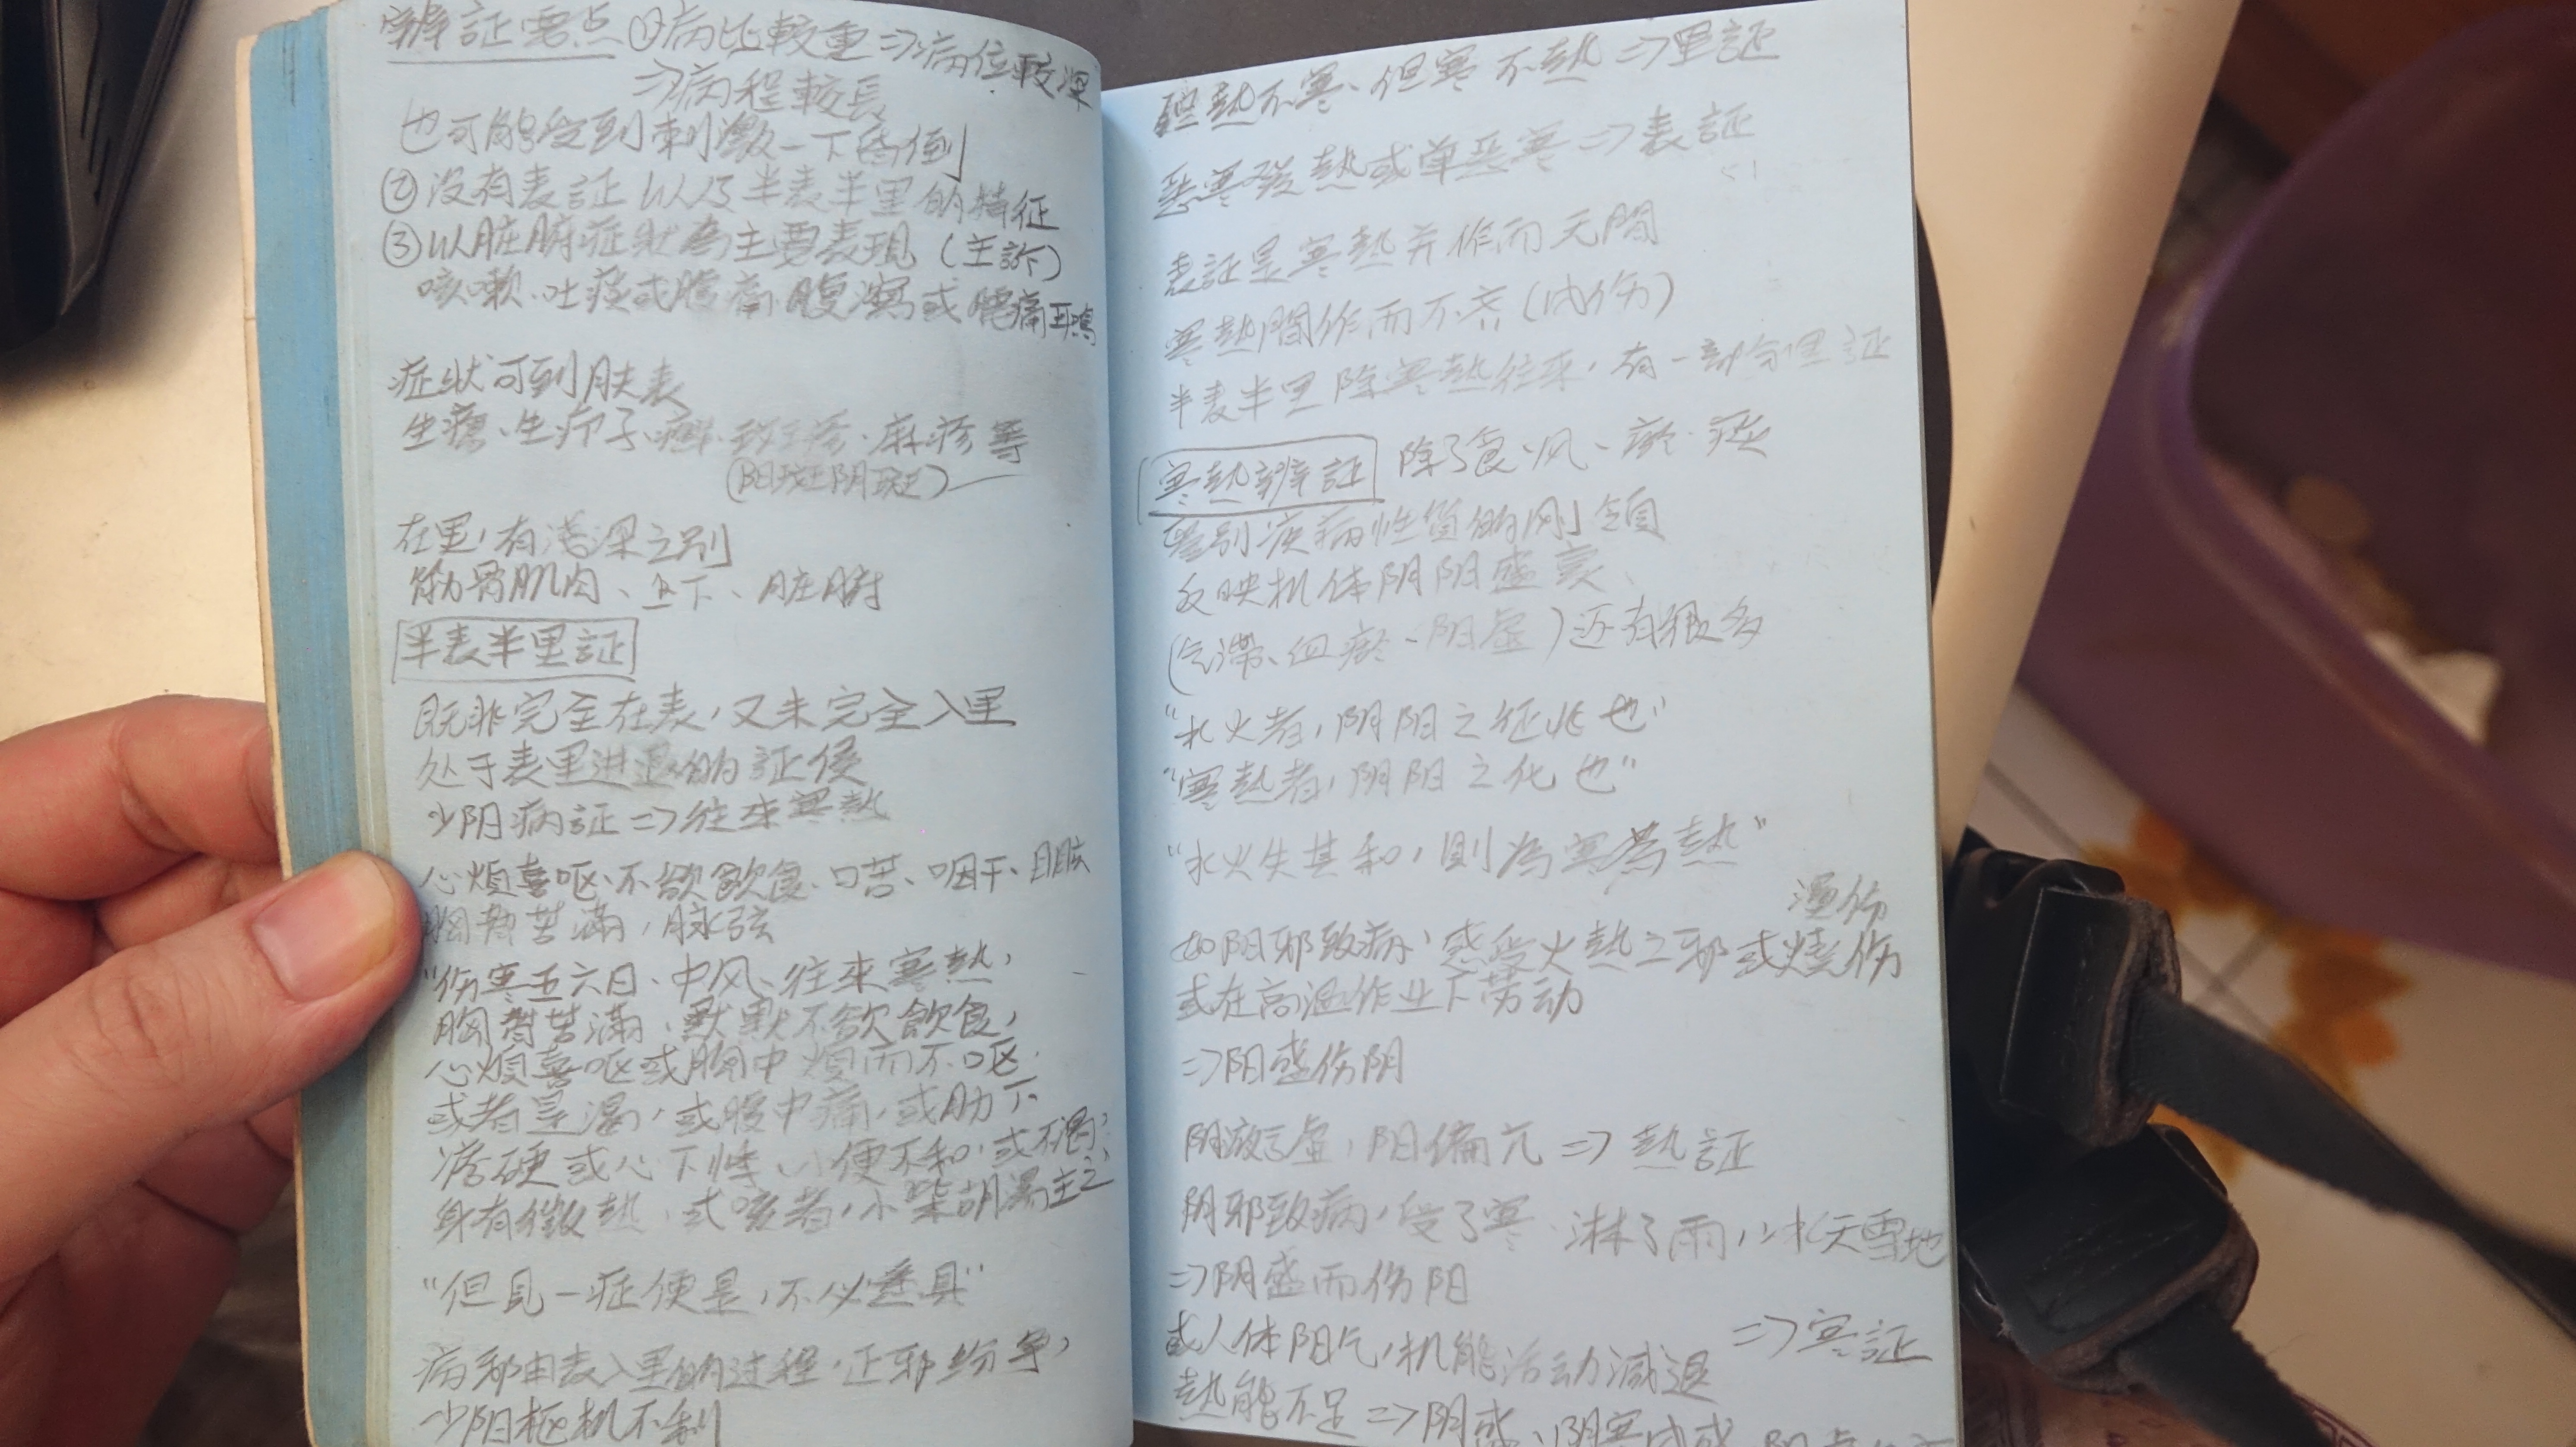 辨証要点①病比較重⇒病位較深
⇒病程較長
也可能受到刺激一下昏倒
②没有表証以及半表半里的特征
③以脏腑症状為主要表現(主訴)
咳嗽、吐痰或腹痛腹瀉或腰痛耳鳴
症状可到肤表
生瘡、生疖子、癣、斑疹、麻疹等
(阳斑阴斑)
在里,有浅深之别
筋骨肌肉、上下、脏腑
半表半里証
既非完全在表,又未完全入里
处于表里进退的証侯
少阳病証⇒往来寒熱
心煩喜呕、不欲飲食、口苦、咽干、目眩
胸脅苦滿,脉弦
"伤寒五六日、中风、往來寒熱,
胸脅苦滿、默默不欲飲食,
心煩喜呕或胸中煩而不呕,
或者是渴,或腹中痛,或肋下
痞硬或心下悸,小便不和,或不渴,
身有微熱,或咳者,小柴胡湯主之
"但見一症便是,不必悉具"
病邪由表入里的过程,正邪纷争,
少阳枢机不利
但熱不寒、但寒不熱⇒里証
恶寒發熱或单恶寒⇒表証
表証是寒熱并作而无間
寒熱間作而不齐(内伤)
半表半里除寒熱往来,有一部分里証
寒熱辨証 除了食、风、瘀、痰
鉴别疾病性質的刚領
反映机体阴阳盛衰
(气滞、血瘀、阴虚)还有很多
"水火者,阴阳之征兆也"
"寒熱者,阴阳之化也"
"水火失其和,則為寒為熱"
燙伤
如阳邪致病,感受火熱之邪或燒伤
或在高温作业下劳动
⇒阳盛伤阴
阴液亏虚,阳偏亢⇒熱証
阴邪致病,受了寒、淋了雨,冰天雪地
⇒阴盛而伤阳
或人体阳气,机能活动減退 ⇒寒証
熱能不足⇒阴盛、阴寒内盛